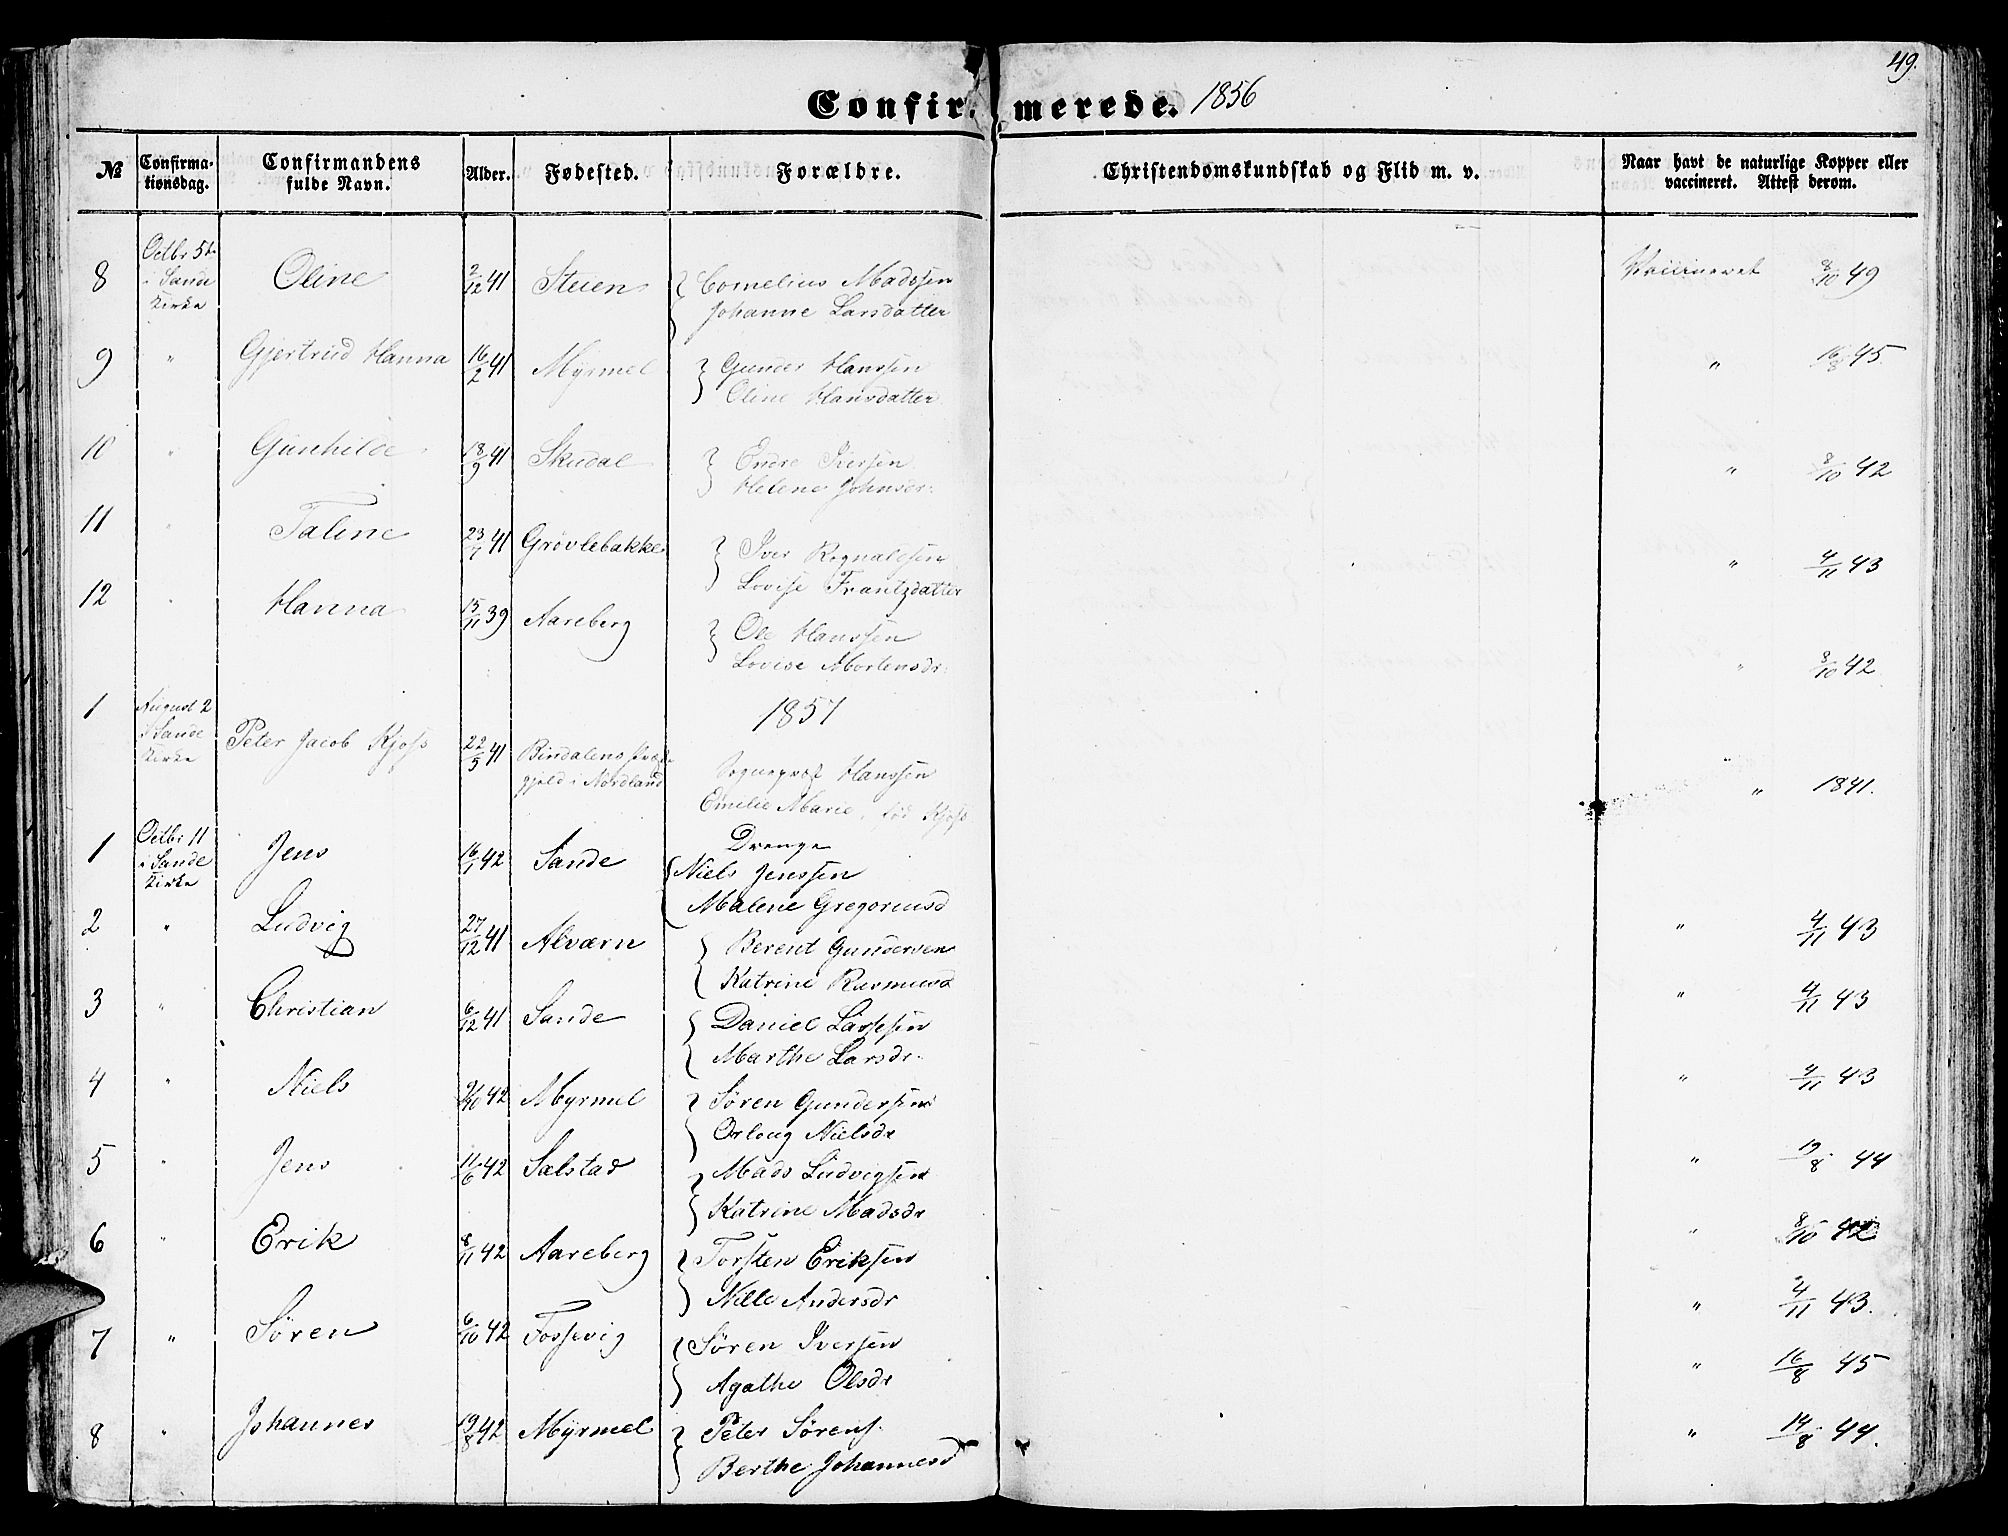 49.
Confirmerede. 1856
№ Confirmationsdag. Confirmandens fulde Navn. Alder. Fødested. Forældre. Christendomskundskab og Flid m. v. Naar havt de naturlige Kopper eller vaccineret. Attest derom.
8 Octbr 5te i Sande Kirke Oline 2/12 41 Steien Cornelius Madssen Vaccineret 8/10 49
Johanne Larsdatter
9 " Gjertrud Hanna 16/2 41 Myrmel Gunder Hanssen " 16/8 45.
Oline Hansdatter
10 " Gunhilde 18/9 41 Skudal Endre Iversen " 8/10 42
Helene Johnsdr.
11 " Taline 23/7 41 Grøvlebakke Iver Rognaldsen " 4/11 43
Lovise Frantzdatter
12 " Hanna 15/11 39 Aareberg Ole Hanssen " 8/10 42
Lovise Mortensdr.
1857
1 August 2 i Sande Kirke Peter Jacob Kjoss 22/5 41 Bindalens Præstegjeld i Nordland Sognepræst Hanssen " 1841.
Emilie Marie, fød Kjoss
Drenge
1 Octbr 11 i Sande Kirke Jens 16/1 42 Sande Niels Jenssen
Malene Gregoriusd
2 " Ludvig 27/12 41 Alværn Berent Gundersen " 4/11 43
Katrine Rasmusd
3 " Christian 6/12 41 Sande Daniel Larssen " 4/11 43
Marthe Larsdr.
4 " Niels 9/10 42 Myrmel Søren Gundersen " 4/11 43
Orloug Nielsdr
5 " Jens 11/6 42 Sælstad Mads Ludvigsen " 19/8 44
Katrine Madsdr
6 " Erik 8/11 42 Aareberg Torsten Eriksen " 8/10 42
Nille Andersdr
7 " Søren 6/10 42 Fossevig Søren Iversen " 4/11 43.
Agathe Olsdr " 16/8 45
8 " Johannes 19/8 42 Myrmel Peter Sørens. " 14/8 44.
Berthe Johannesd